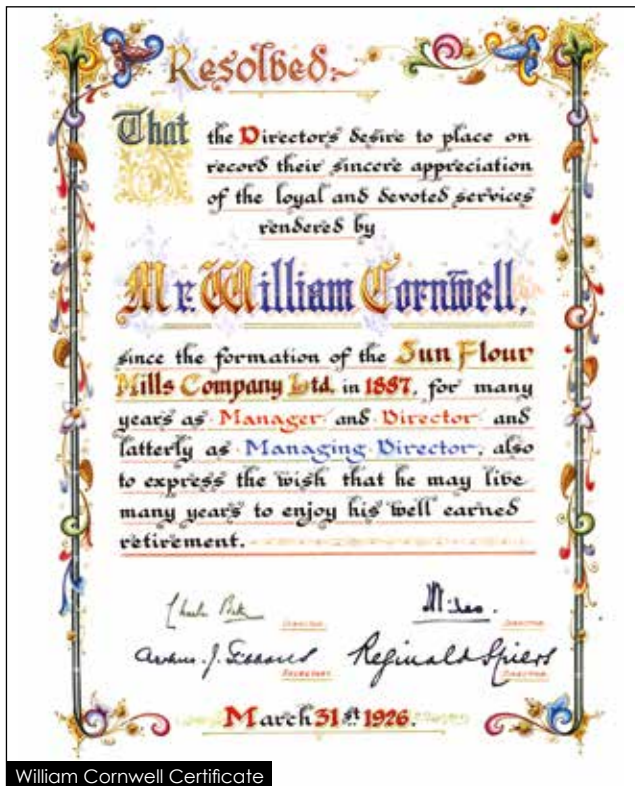 Resolved:~
That the Directors desire to place on
record their sincere appreciation
of the loyal and devoted services
rendered by
Mr. William Cornwell,
since the formation of the Sun Flour
Mills Company Ltd. in 1887, for many
years as Manager and Director and
latterly as Managing Director, also
to express the wish that he may live
many years to enjoy his well earned
retirement.
Director
Director
Reginald Spiers
Secretary
Director
March 31st 1926.
William Cornwell Certificate